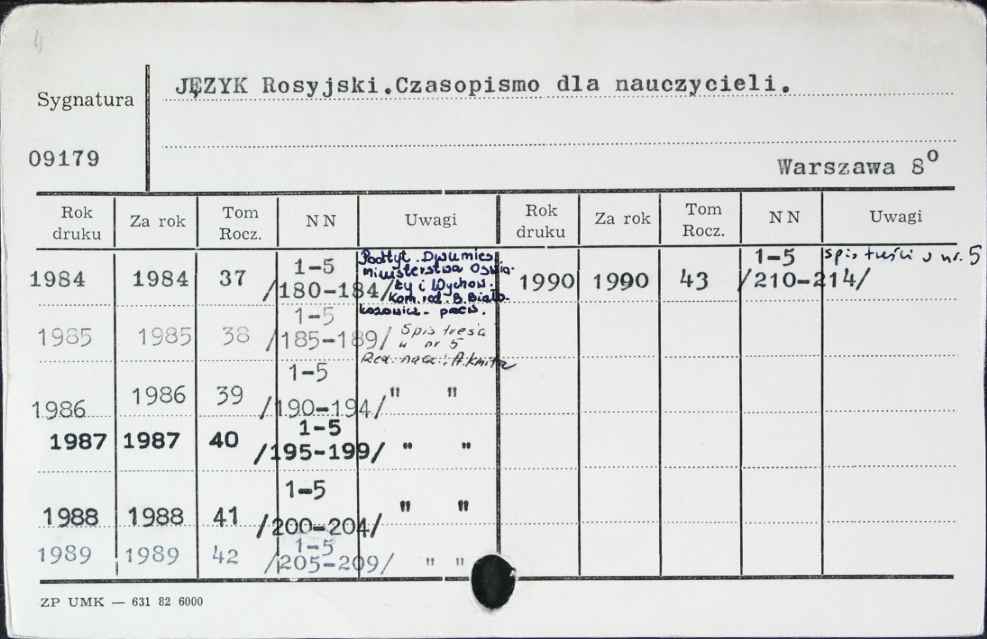 JĘZYK Rosyjski.Czasopismo dla nauczycieli.
Sygnatura
09179
Warszawa 8º
Rok druku Za rok Tom Rocz. NN Uwagi Rok druku Za rok Tom Rocz. NN Uwagi
1984 1984 37 1-5 /180-184/ Podtyt. Dwumies. Ministerstwa Oświa- ty i Wychow. Kom. red. B. Biało- kozowicz - przew. 1990 1990 43 1-5 /210-214/ Spis treści w nr. 5
1985 1985 38 1-5 /185-189/ Spis treści w nr 5
Red. nacz.: A. Knita
1986 1986 39 1-5 /190-194/ " "
1987 1987 40 1-5 /195-199/ " "
1988 1988 41 1-5 /200-204/ " "
1989 1989 42 1-5 /205-209/ " "
ZP UMK — 631 82 6000